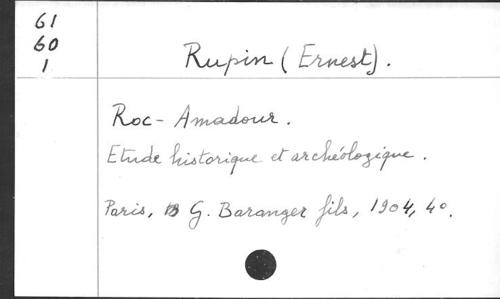 61
60
1
Rupin (Ernest).
Roc-Amadour.
Etude historique et archéologique.
Paris, G. Baranger fils, 1904, 4o.